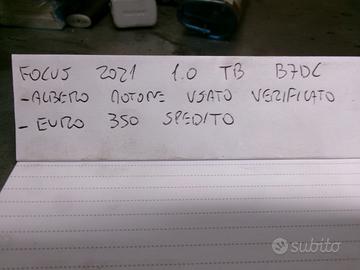 FOCUS 2021 1.0 TB B7DC
- ALBERO MOTORE USATO VERIFICATO
- EURO 350 SPEDITO
subito